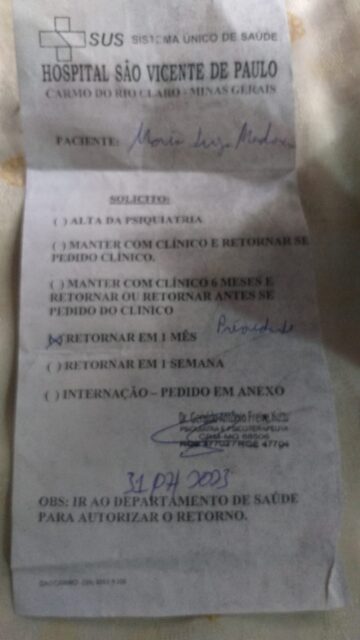 SUS SISTEMA ÚNICO DE SAÚDE
HOSPITAL SÃO VICENTE DE PAULO
CARMO DO RIO CLARO - MINAS GERAIS
PACIENTE: Maria
SOLICITO:
( ) ALTA DA PSIQUIATRIA
( ) MANTER COM CLÍNICO E RETORNAR SE
PEDIDO CLÍNICO.
( ) MANTER COM CLÍNICO 6 MESES E
RETORNAR OU RETORNAR ANTES SE
PEDIDO DO CLÍNICO
(X) RETORNAR EM 1 MÊS
( ) RETORNAR EM 1 SEMANA
( ) INTERNAÇÃO – PEDIDO EM ANEXO
PSIQUIATRIA E PSICOTERAPEUTA
31 2023
OBS: IR AO DEPARTAMENTO DE SAÚDE
PARA AUTORIZAR O RETORNO.